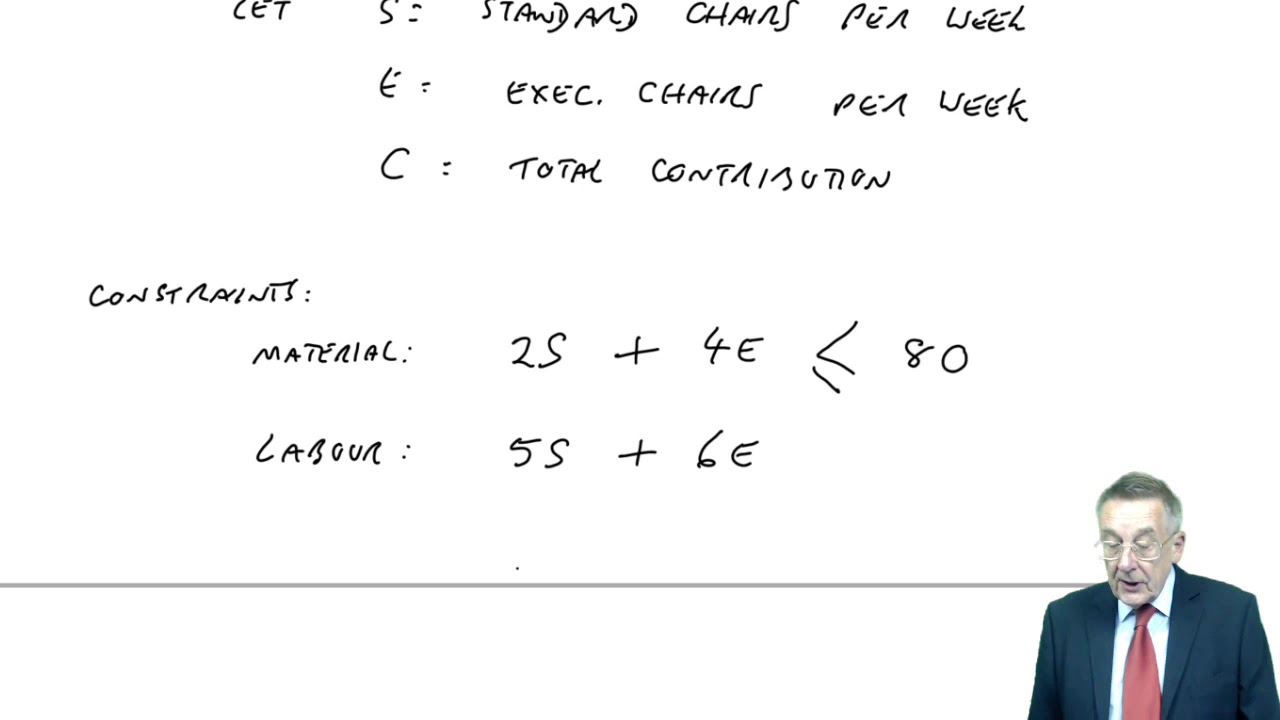 LET S = STANDARD CHAIRS PER WEEK
E = EXEC. CHAIRS PER WEEK
C = TOTAL CONTRIBUTION
CONSTRAINTS:
MATERIAL: 2S + 4E ≤ 80
LABOUR: 5S + 6E